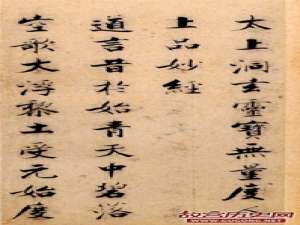 太上洞玄靈寶無量度
上品妙經
道言昔於始青天中碧落
空歌大浮黎土受元始度